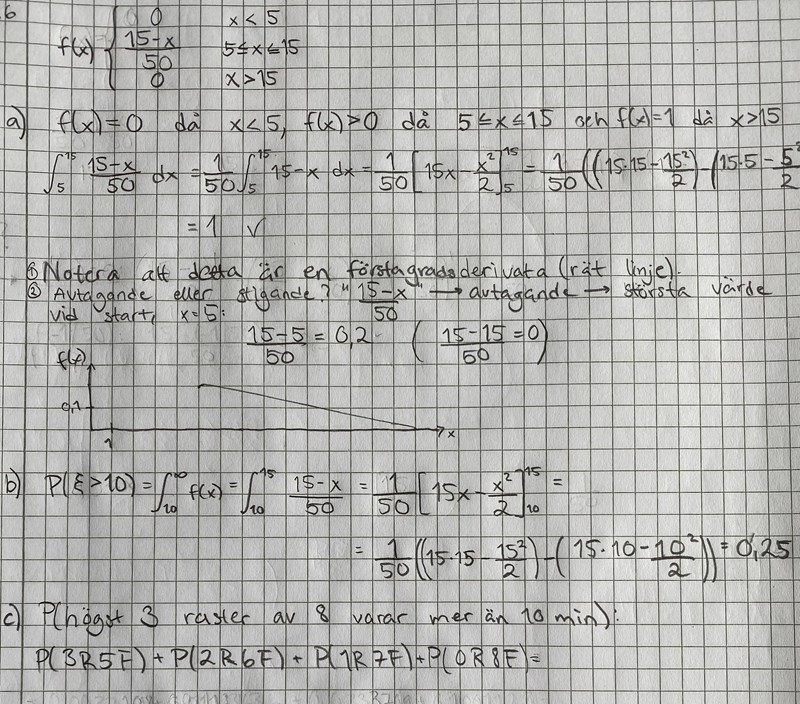 6
f(x) { 0 x < 5
15-x/50 5≤x≤15
0 x > 15
a) f(x) = 0 då x<5, f(x) > 0 då 5≤x≤15 och f(x)=1 då x>15
∫₅¹⁵ 15-x/50 dx = 1/50 ∫₅¹⁵ 15-x dx = 1/50 [15x - x²/2]₅¹⁵ = 1/50 ((15·15 - 15²/2) - (15·5 - 5²/2
= 1 √
① Notera att detta är en förstagradsderivata (rät linje).
② Avtagande eller stigande? "15-x/50" → avtagande → största värde
vid start, x=5:
15-5/50 = 0,2 (15-15/50 = 0)
f(x)
0,1
x
1
b) P(ξ>10) = ∫₁₀^∞ f(x) = ∫₁₀¹⁵ 15-x/50 = 1/50 [15x - x²/2]₁₀¹⁵ =
= 1/50 ((15·15 - 15²/2) - (15·10 - 10²/2)) = 0,25
c) P(högst 3 raster av 8 varar mer än 10 min):
P(3R5F) + P(2R6F) + P(1R7F) + P(0R8F) =